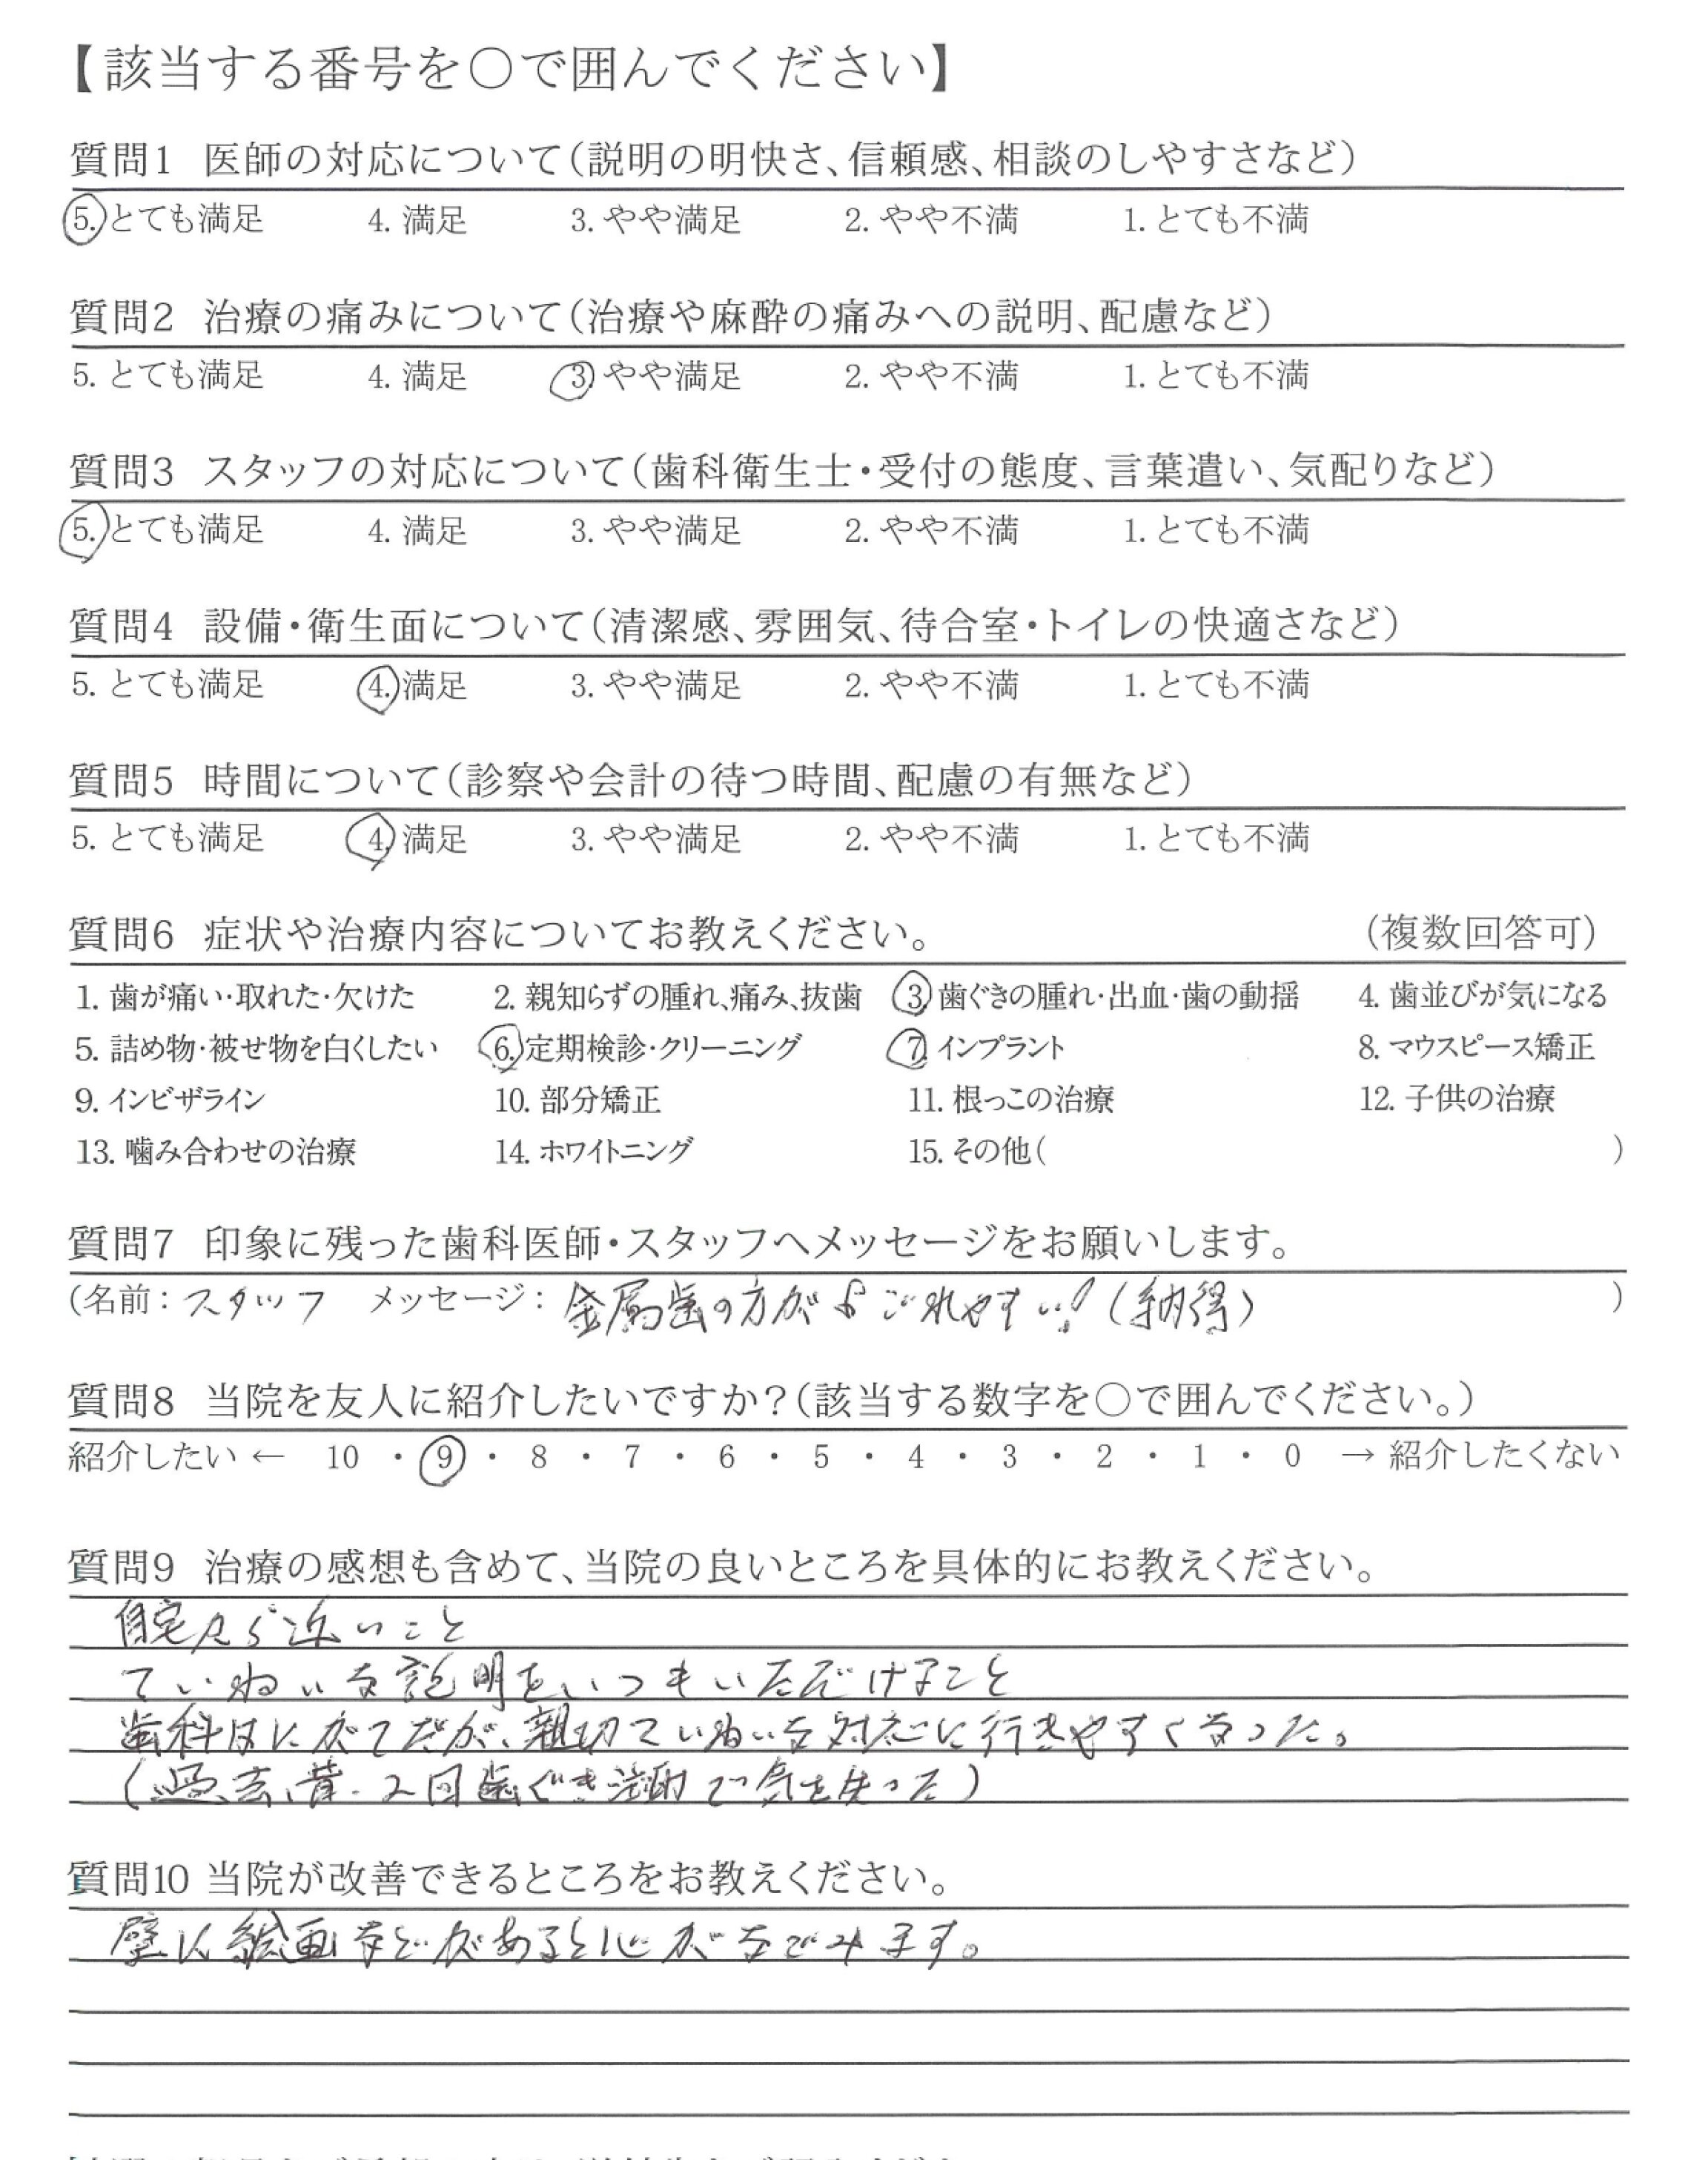 【該当する番号を○で囲んでください】
質問1 医師の対応について(説明の明快さ、信頼感、相談のしやすさなど)
5. とても満足 4. 満足 3. やや満足 2. やや不満 1. とても不満
質問2 治療の痛みについて(治療や麻酔の痛みへの説明、配慮など)
5. とても満足 4. 満足 3. やや満足 2. やや不満 1. とても不満
質問3 スタッフの対応について(歯科衛生士・受付の態度、言葉遣い、気配りなど)
5. とても満足 4. 満足 3. やや満足 2. やや不満 1. とても不満
質問4 設備・衛生面について(清潔感、雰囲気、待合室・トイレの快適さなど)
5. とても満足 4. 満足 3. やや満足 2. やや不満 1. とても不満
質問5 時間について(診察や会計の待つ時間、配慮の有無など)
5. とても満足 4. 満足 3. やや満足 2. やや不満 1. とても不満
質問6 症状や治療内容についてお教えください。 (複数回答可)
1. 歯が痛い・取れた・欠けた 2. 親知らずの腫れ、痛み、抜歯 3. 歯ぐきの腫れ・出血・歯の動揺 4. 歯並びが気になる
5. 詰め物・被せ物を白くしたい 6. 定期検診・クリーニング 7. インプラント 8. マウスピース矯正
9. インビザライン 10. 部分矯正 11. 根っこの治療 12. 子供の治療
13. 噛み合わせの治療 14. ホワイトニング 15. その他( )
質問7 印象に残った歯科医師・スタッフへメッセージをお願いします。
(名前: スタッフ メッセージ: 金属歯の方がよごれやすい!(納得) )
質問8 当院を友人に紹介したいですか?(該当する数字を○で囲んでください。)
紹介したい ← 10 ・ 9 ・ 8 ・ 7 ・ 6 ・ 5 ・ 4 ・ 3 ・ 2 ・ 1 ・ 0 → 紹介したくない
質問9 治療の感想も含めて、当院の良いところを具体的にお教えください。
自宅から近いこと
ていねいな説明をいつもいただけること
歯科はにがてだが、親切ていねいな対応に行きやすくなった。
(過去、昔、2回歯ぐき注射で気を失った)
質問10 当院が改善できるところをお教えください。
壁に絵画などがあると心がなごみます。